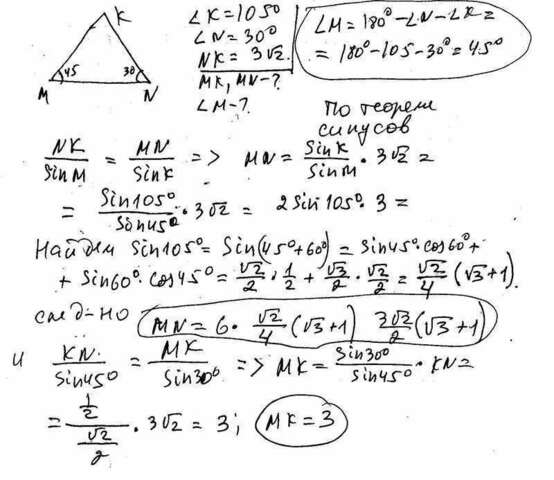 K
45
30
M
N
∠K=105°
∠N=30°
NK=3√2
MK, MN-?
∠M-?
∠M=180°-∠N-∠K=
=180°-105-30°=45°
По теореме
синусов
NK/sinM = MN/sinK => MN = sinK/sinM · 3√2 =
= sin105°/sin45° · 3√2 = 2sin105° · 3 =
Найдем sin105° = sin(45°+60°) = sin45°·cos60°+
+ sin60°·cos45° = √2/2 · 1/2 + √3/2 · √2/2 = √2/4 (√3+1).
след-но MN = 6 · √2/4 (√3+1) 3√2/2 (√3+1)
и KN/sin45° = MK/sin30° => MK = sin30°/sin45° · KN =
= 1/2 / √2/2 · 3√2 = 3; MK=3